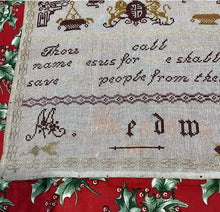 Thou call
name esus for e shall
save people from the
M. e d w